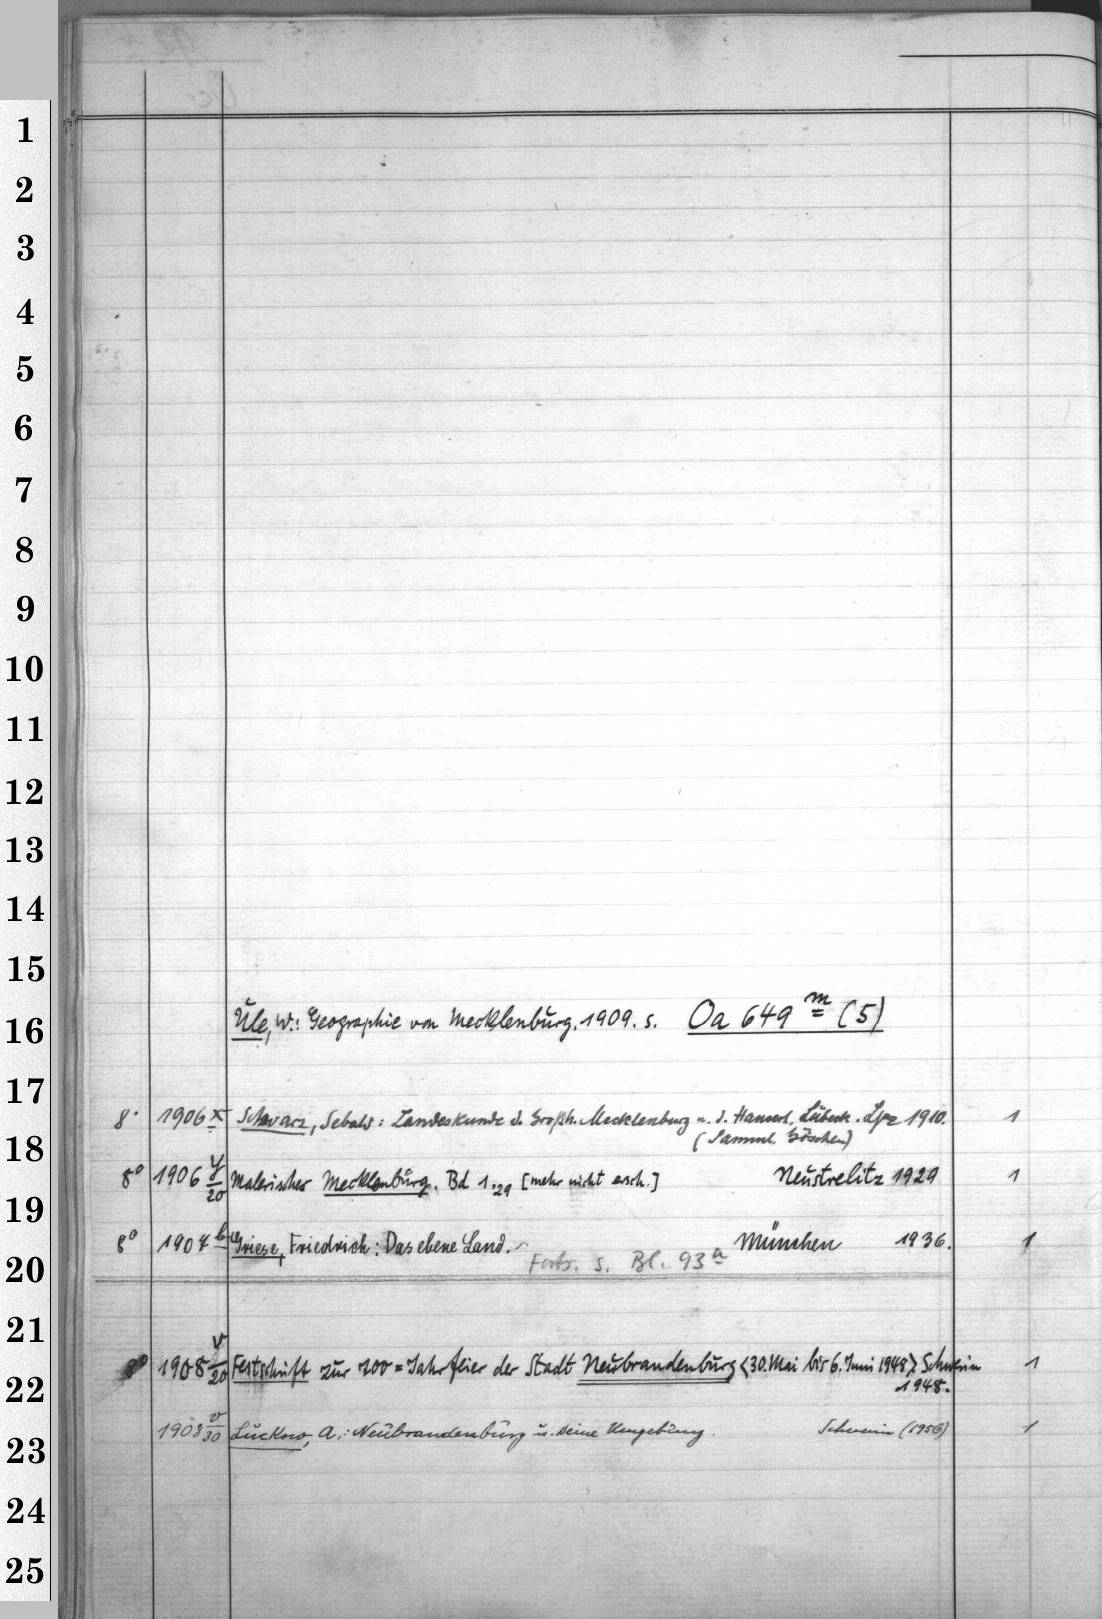 1
2
3
4
5
6
7
8
9
10
11
12
13
14
15
Ule, W.: Geographie von Mecklenburg. 1909. s. Oa 649 m (5)
16
17
8° 1906 x Schwarz, Sebald: Landeskunde d. Großh. Mecklenburg u. d. Hansest. Lübeck. Lpz 1910. 1
(Samml. Göschen)
18
8° 1906 y/20 Malerisches Mecklenburg. Bd 1.29 [mehr nicht ersch.] Neustrelitz 1929 1
19
8° 1907 b Griese, Friedrich: Das ebene Land. München 1936. 1
Forts. s. Bl. 93a
20
21
8° 1908 v/20 Festschrift zur 700=Jahrfeier der Stadt Neubrandenburg <30. Mai bis 6. Juni 1948> Schwerin 1
1948.
22
1908 v/30 Lückow, A.: Neubrandenburg u. seine Umgebung. Schwerin (1956) 1
23
24
25